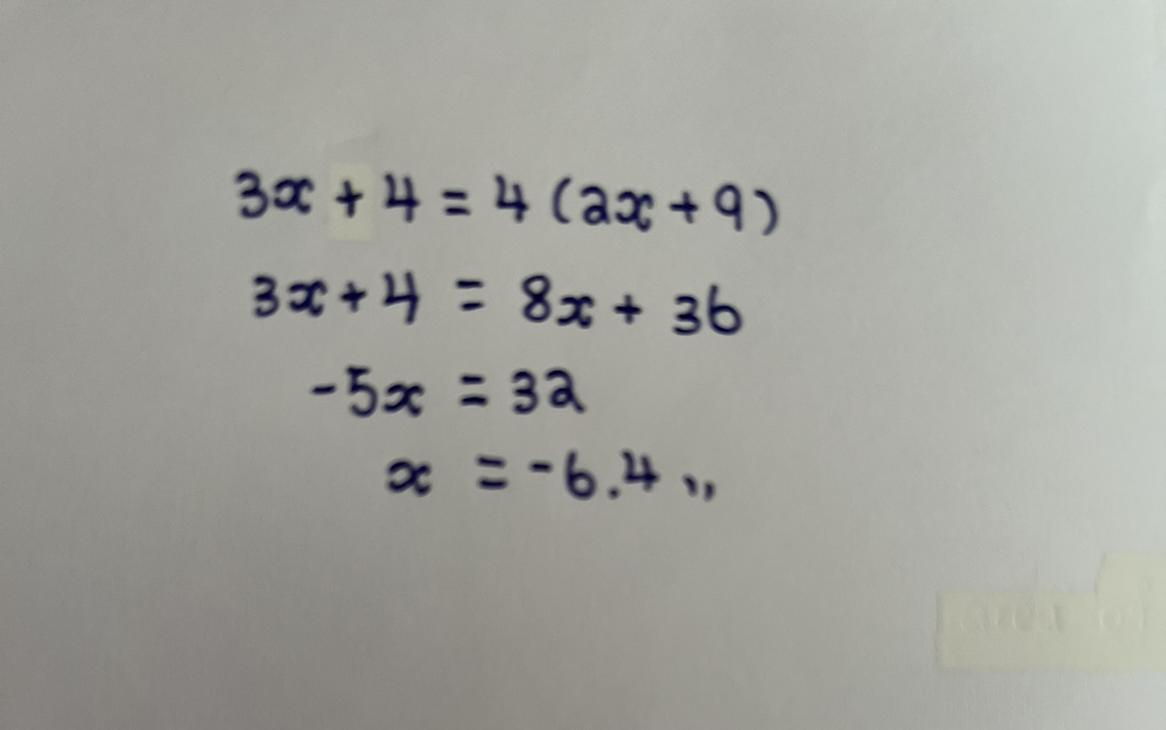 3x + 4 = 4 (2x + 9)
3x + 4 = 8x + 36
-5x = 32
x = -6.4 ,,